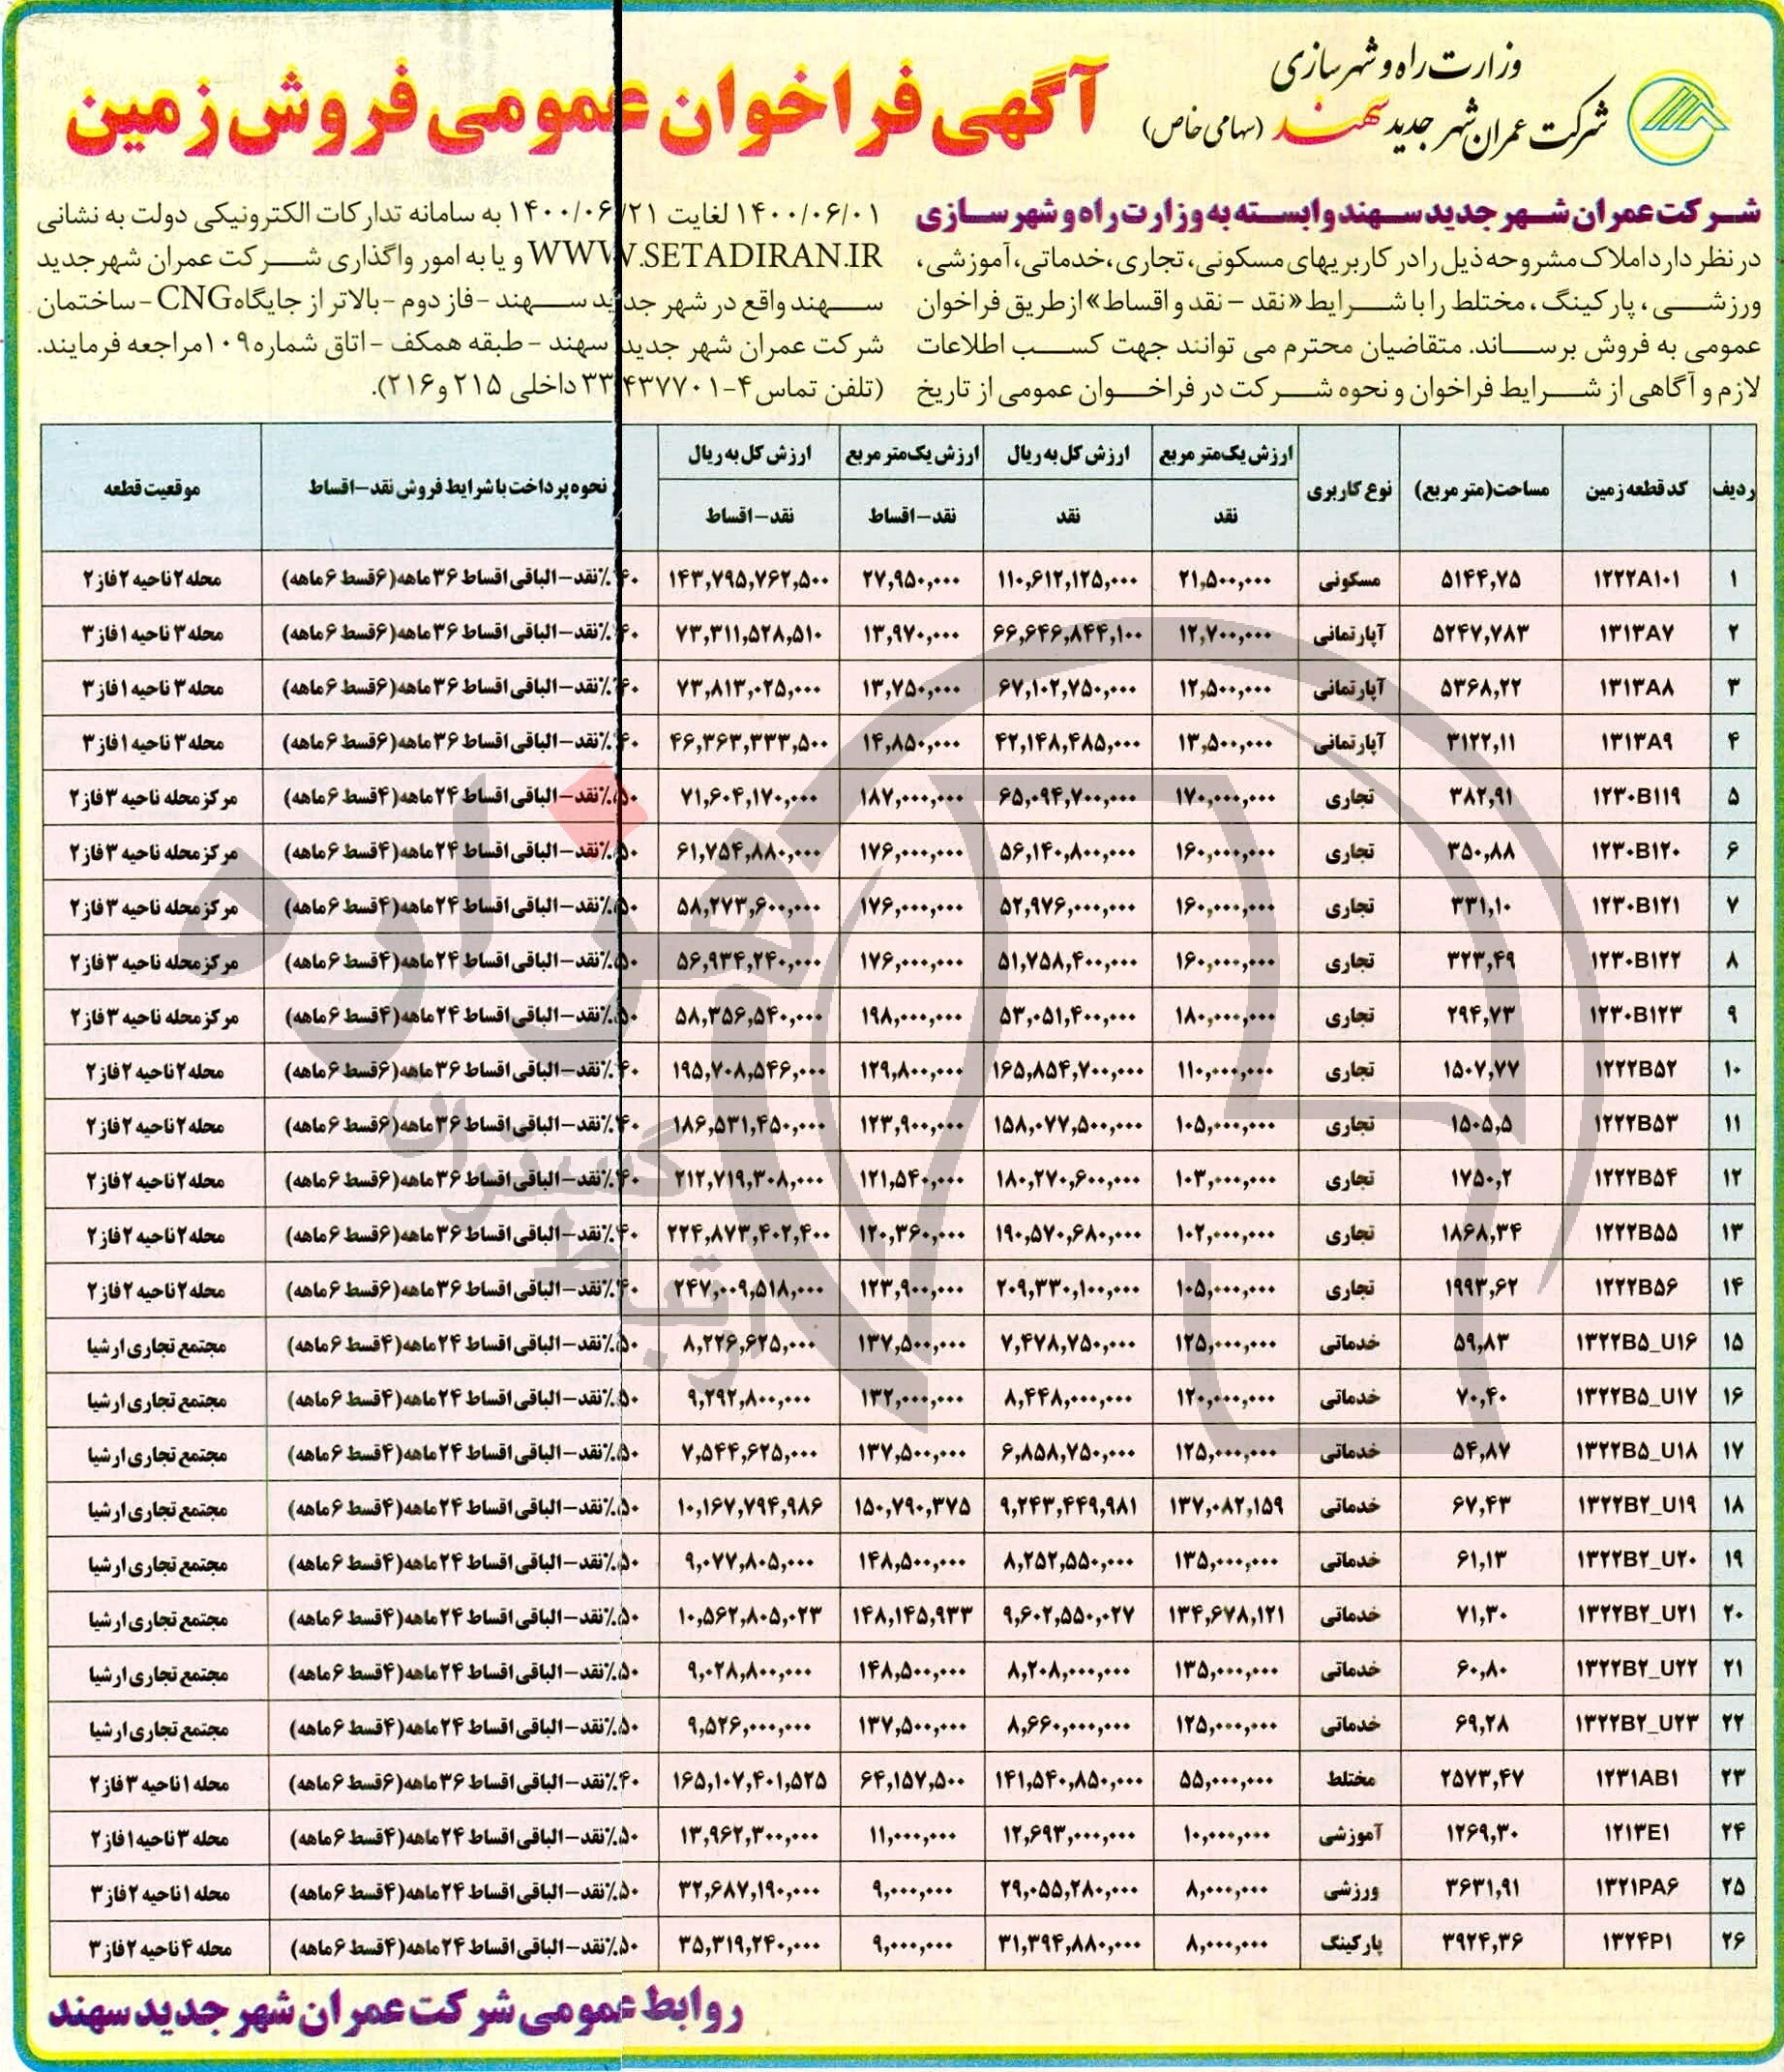 وزارت راه و شهرسازی
شرکت عمران شهر جدید سهند (سهامی خاص)
آگهی فراخوان عمومی فروش زمین
شرکت عمران شهر جدید سهند وابسته به وزارت راه و شهرسازی
در نظر دارد املاک مشروحه ذیل را در کاربریهای مسکونی، تجاری، خدماتی، آموزشی،
ورزشی، پارکینگ، مختلط را با شرایط «نقد - نقد و اقساط» از طریق فراخوان
عمومی به فروش برساند. متقاضیان محترم می توانند جهت کسب اطلاعات
لازم و آگاهی از شرایط فراخوان و نحوه شرکت در فراخوان عمومی از تاریخ
۱۴۰۰/۰۶/۰۱ لغایت ۱۴۰۰/۰۶/۲۱ به سامانه تدارکات الکترونیکی دولت به نشانی
WWW.SETADIRAN.IR و یا به امور واگذاری شرکت عمران شهر جدید
سهند واقع در شهر جدید سهند - فاز دوم - بالاتر از جایگاه CNG - ساختمان
شرکت عمران شهر جدید سهند - طبقه همکف - اتاق شماره ۱۰۹ مراجعه فرمایند.
(تلفن تماس ۴-۳۳۴۳۷۷۰۱ داخلی ۲۱۵ و ۲۱۶).
ردیف کد قطعه زمین مساحت (متر مربع) نوع کاربری ارزش یک متر مربع نقد ارزش کل به ریال نقد ارزش یک متر مربع نقد - اقساط ارزش کل به ریال نقد - اقساط نحوه پرداخت با شرایط فروش نقد - اقساط موقعیت قطعه
۱ ۱۲۲۲A۱۰۱ ۵۱۴۴,۷۵ مسکونی ۲۱,۵۰۰,۰۰۰ ۱۱۰,۶۱۲,۱۲۵,۰۰۰ ۲۷,۹۵۰,۰۰۰ ۱۴۳,۷۹۵,۷۶۲,۵۰۰ ۴۰٪ نقد - الباقی اقساط ۳۶ ماهه (۶ قسط ۶ ماهه) محله ۲ ناحیه ۲ فاز ۲
۲ ۱۳۱۳A۷ ۵۲۴۷,۷۸۳ آپارتمانی ۱۲,۷۰۰,۰۰۰ ۶۶,۶۴۶,۸۴۴,۱۰۰ ۱۳,۹۷۰,۰۰۰ ۷۳,۳۱۱,۵۲۸,۵۱۰ ۴۰٪ نقد - الباقی اقساط ۳۶ ماهه (۶ قسط ۶ ماهه) محله ۳ ناحیه ۱ فاز ۳
۳ ۱۳۱۳A۸ ۵۳۶۸,۲۲ آپارتمانی ۱۲,۵۰۰,۰۰۰ ۶۷,۱۰۲,۷۵۰,۰۰۰ ۱۳,۷۵۰,۰۰۰ ۷۳,۸۱۳,۰۲۵,۰۰۰ ۴۰٪ نقد - الباقی اقساط ۳۶ ماهه (۶ قسط ۶ ماهه) محله ۳ ناحیه ۱ فاز ۳
۴ ۱۳۱۳A۹ ۳۱۲۲,۱۱ آپارتمانی ۱۳,۵۰۰,۰۰۰ ۴۲,۱۴۸,۴۸۵,۰۰۰ ۱۴,۸۵۰,۰۰۰ ۴۶,۳۶۳,۳۳۳,۵۰۰ ۴۰٪ نقد - الباقی اقساط ۳۶ ماهه (۶ قسط ۶ ماهه) محله ۳ ناحیه ۱ فاز ۳
۵ ۱۲۳۰B۱۱۹ ۳۸۲,۹۱ تجاری ۱۷۰,۰۰۰,۰۰۰ ۶۵,۰۹۴,۷۰۰,۰۰۰ ۱۸۷,۰۰۰,۰۰۰ ۷۱,۶۰۴,۱۷۰,۰۰۰ ۵۰٪ نقد - الباقی اقساط ۲۴ ماهه (۴ قسط ۶ ماهه) مرکز محله ناحیه ۳ فاز ۲
۶ ۱۲۳۰B۱۲۰ ۳۵۰,۸۸ تجاری ۱۶۰,۰۰۰,۰۰۰ ۵۶,۱۴۰,۸۰۰,۰۰۰ ۱۷۶,۰۰۰,۰۰۰ ۶۱,۷۵۴,۸۸۰,۰۰۰ ۵۰٪ نقد - الباقی اقساط ۲۴ ماهه (۴ قسط ۶ ماهه) مرکز محله ناحیه ۳ فاز ۲
۷ ۱۲۳۰B۱۲۱ ۳۳۱,۱۰ تجاری ۱۶۰,۰۰۰,۰۰۰ ۵۲,۹۷۶,۰۰۰,۰۰۰ ۱۷۶,۰۰۰,۰۰۰ ۵۸,۲۷۳,۶۰۰,۰۰۰ ۵۰٪ نقد - الباقی اقساط ۲۴ ماهه (۴ قسط ۶ ماهه) مرکز محله ناحیه ۳ فاز ۲
۸ ۱۲۳۰B۱۲۲ ۳۲۳,۴۹ تجاری ۱۶۰,۰۰۰,۰۰۰ ۵۱,۷۵۸,۴۰۰,۰۰۰ ۱۷۶,۰۰۰,۰۰۰ ۵۶,۹۳۴,۲۴۰,۰۰۰ ۵۰٪ نقد - الباقی اقساط ۲۴ ماهه (۴ قسط ۶ ماهه) مرکز محله ناحیه ۳ فاز ۲
۹ ۱۲۳۰B۱۲۳ ۲۹۴,۷۳ تجاری ۱۸۰,۰۰۰,۰۰۰ ۵۳,۰۵۱,۴۰۰,۰۰۰ ۱۹۸,۰۰۰,۰۰۰ ۵۸,۳۵۶,۵۴۰,۰۰۰ ۵۰٪ نقد - الباقی اقساط ۲۴ ماهه (۴ قسط ۶ ماهه) مرکز محله ناحیه ۳ فاز ۲
۱۰ ۱۲۲۲B۵۲ ۱۵۰۷,۷۷ تجاری ۱۱۰,۰۰۰,۰۰۰ ۱۶۵,۸۵۴,۷۰۰,۰۰۰ ۱۲۹,۸۰۰,۰۰۰ ۱۹۵,۷۰۸,۵۴۶,۰۰۰ ۴۰٪ نقد - الباقی اقساط ۳۶ ماهه (۶ قسط ۶ ماهه) محله ۲ ناحیه ۲ فاز ۲
۱۱ ۱۲۲۲B۵۳ ۱۵۰۵,۵ تجاری ۱۰۵,۰۰۰,۰۰۰ ۱۵۸,۰۷۷,۵۰۰,۰۰۰ ۱۲۳,۹۰۰,۰۰۰ ۱۸۶,۵۳۱,۴۵۰,۰۰۰ ۴۰٪ نقد - الباقی اقساط ۳۶ ماهه (۶ قسط ۶ ماهه) محله ۲ ناحیه ۲ فاز ۲
۱۲ ۱۲۲۲B۵۴ ۱۷۵۰,۲ تجاری ۱۰۳,۰۰۰,۰۰۰ ۱۸۰,۲۷۰,۶۰۰,۰۰۰ ۱۲۱,۵۴۰,۰۰۰ ۲۱۲,۷۱۹,۳۰۸,۰۰۰ ۴۰٪ نقد - الباقی اقساط ۳۶ ماهه (۶ قسط ۶ ماهه) محله ۲ ناحیه ۲ فاز ۲
۱۳ ۱۲۲۲B۵۵ ۱۸۶۸,۳۴ تجاری ۱۰۲,۰۰۰,۰۰۰ ۱۹۰,۵۷۰,۶۸۰,۰۰۰ ۱۲۰,۳۶۰,۰۰۰ ۲۲۴,۸۷۳,۴۰۲,۴۰۰ ۴۰٪ نقد - الباقی اقساط ۳۶ ماهه (۶ قسط ۶ ماهه) محله ۲ ناحیه ۲ فاز ۲
۱۴ ۱۲۲۲B۵۶ ۱۹۹۳,۶۲ تجاری ۱۰۵,۰۰۰,۰۰۰ ۲۰۹,۳۳۰,۱۰۰,۰۰۰ ۱۲۳,۹۰۰,۰۰۰ ۲۴۷,۰۰۹,۵۱۸,۰۰۰ ۴۰٪ نقد - الباقی اقساط ۳۶ ماهه (۶ قسط ۶ ماهه) محله ۲ ناحیه ۲ فاز ۲
۱۵ ۱۳۲۲B۵_U۱۶ ۵۹,۸۳ خدماتی ۱۲۵,۰۰۰,۰۰۰ ۷,۴۷۸,۷۵۰,۰۰۰ ۱۳۷,۵۰۰,۰۰۰ ۸,۲۲۶,۶۲۵,۰۰۰ ۵۰٪ نقد - الباقی اقساط ۲۴ ماهه (۴ قسط ۶ ماهه) مجتمع تجاری ارشیا
۱۶ ۱۳۲۲B۵_U۱۷ ۷۰,۴۰ خدماتی ۱۲۰,۰۰۰,۰۰۰ ۸,۴۴۸,۰۰۰,۰۰۰ ۱۳۲,۰۰۰,۰۰۰ ۹,۲۹۲,۸۰۰,۰۰۰ ۵۰٪ نقد - الباقی اقساط ۲۴ ماهه (۴ قسط ۶ ماهه) مجتمع تجاری ارشیا
۱۷ ۱۳۲۲B۵_U۱۸ ۵۴,۸۷ خدماتی ۱۲۵,۰۰۰,۰۰۰ ۶,۸۵۸,۷۵۰,۰۰۰ ۱۳۷,۵۰۰,۰۰۰ ۷,۵۴۴,۶۲۵,۰۰۰ ۵۰٪ نقد - الباقی اقساط ۲۴ ماهه (۴ قسط ۶ ماهه) مجتمع تجاری ارشیا
۱۸ ۱۳۲۲B۲_U۱۹ ۶۷,۴۳ خدماتی ۱۳۷,۰۸۲,۱۵۹ ۹,۲۴۳,۴۴۹,۹۸۱ ۱۵۰,۷۹۰,۳۷۵ ۱۰,۱۶۷,۷۹۴,۹۸۶ ۵۰٪ نقد - الباقی اقساط ۲۴ ماهه (۴ قسط ۶ ماهه) مجتمع تجاری ارشیا
۱۹ ۱۳۲۲B۲_U۲۰ ۶۱,۱۳ خدماتی ۱۳۵,۰۰۰,۰۰۰ ۸,۲۵۲,۵۵۰,۰۰۰ ۱۴۸,۵۰۰,۰۰۰ ۹,۰۷۷,۸۰۵,۰۰۰ ۵۰٪ نقد - الباقی اقساط ۲۴ ماهه (۴ قسط ۶ ماهه) مجتمع تجاری ارشیا
۲۰ ۱۳۲۲B۲_U۲۱ ۷۱,۳۰ خدماتی ۱۳۴,۶۷۸,۱۲۱ ۹,۶۰۲,۵۵۰,۰۲۷ ۱۴۸,۱۴۵,۹۳۳ ۱۰,۵۶۲,۸۰۵,۰۲۳ ۵۰٪ نقد - الباقی اقساط ۲۴ ماهه (۴ قسط ۶ ماهه) مجتمع تجاری ارشیا
۲۱ ۱۳۲۲B۲_U۲۲ ۶۰,۸۰ خدماتی ۱۳۵,۰۰۰,۰۰۰ ۸,۲۰۸,۰۰۰,۰۰۰ ۱۴۸,۵۰۰,۰۰۰ ۹,۰۲۸,۸۰۰,۰۰۰ ۵۰٪ نقد - الباقی اقساط ۲۴ ماهه (۴ قسط ۶ ماهه) مجتمع تجاری ارشیا
۲۲ ۱۳۲۲B۲_U۲۳ ۶۹,۲۸ خدماتی ۱۲۵,۰۰۰,۰۰۰ ۸,۶۶۰,۰۰۰,۰۰۰ ۱۳۷,۵۰۰,۰۰۰ ۹,۵۲۶,۰۰۰,۰۰۰ ۵۰٪ نقد - الباقی اقساط ۲۴ ماهه (۴ قسط ۶ ماهه) مجتمع تجاری ارشیا
۲۳ ۱۲۳۱AB۱ ۲۵۷۳,۴۷ مختلط ۵۵,۰۰۰,۰۰۰ ۱۴۱,۵۴۰,۸۵۰,۰۰۰ ۶۴,۱۵۷,۵۰۰ ۱۶۵,۱۰۷,۴۰۱,۵۲۵ ۴۰٪ نقد - الباقی اقساط ۳۶ ماهه (۶ قسط ۶ ماهه) محله ۱ ناحیه ۳ فاز ۲
۲۴ ۱۲۱۳E۱ ۱۲۶۹,۳۰ آموزشی ۱۰,۰۰۰,۰۰۰ ۱۲,۶۹۳,۰۰۰,۰۰۰ ۱۱,۰۰۰,۰۰۰ ۱۳,۹۶۲,۳۰۰,۰۰۰ ۵۰٪ نقد - الباقی اقساط ۲۴ ماهه (۴ قسط ۶ ماهه) محله ۳ ناحیه ۱ فاز ۲
۲۵ ۱۳۲۱PA۶ ۳۶۳۱,۹۱ ورزشی ۸,۰۰۰,۰۰۰ ۲۹,۰۵۵,۲۸۰,۰۰۰ ۹,۰۰۰,۰۰۰ ۳۲,۶۸۷,۱۹۰,۰۰۰ ۵۰٪ نقد - الباقی اقساط ۲۴ ماهه (۴ قسط ۶ ماهه) محله ۱ ناحیه ۲ فاز ۳
۲۶ ۱۳۲۴P۱ ۳۹۲۴,۳۶ پارکینگ ۸,۰۰۰,۰۰۰ ۳۱,۳۹۴,۸۸۰,۰۰۰ ۹,۰۰۰,۰۰۰ ۳۵,۳۱۹,۲۴۰,۰۰۰ ۵۰٪ نقد - الباقی اقساط ۲۴ ماهه (۴ قسط ۶ ماهه) محله ۴ ناحیه ۲ فاز ۳
روابط عمومی شرکت عمران شهر جدید سهند